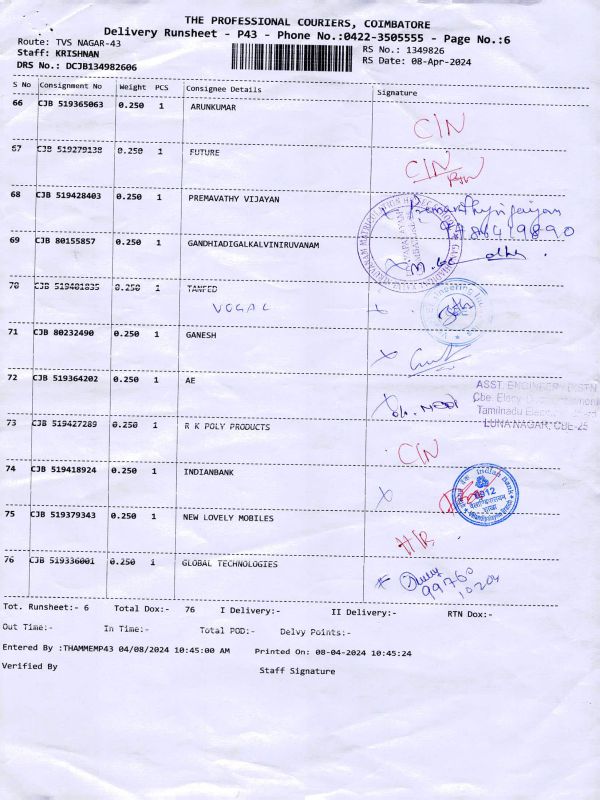 THE PROFESSIONAL COURIERS, COIMBATORE
Delivery Runsheet - P43 - Phone No.:0422-3505555 - Page No.:6
Route: TVS NAGAR-43 RS No.: 1349826
Staff: KRISHNAN RS Date: 08-Apr-2024
DRS No.: DCJB134982606
S No Consignment No Weight PCS Consignee Details Signature
66 CJB 519365063 0.250 1 ARUNKUMAR C/N
67 CJB 519279138 0.250 1 FUTURE C/N
68 CJB 519428403 0.250 1 PREMAVATHY VIJAYAN
69 CJB 80155857 0.250 1 GANDHIADIGALKALVINIRUVANAM
70 CJB 519401835 0.250 1 TANFED
71 CJB 80232490 0.250 1 GANESH
72 CJB 519364202 0.250 1 AE
ASST ENGINEER
Tamilnadu
LUNA NAGAR, CBE-25
73 CJB 519427289 0.250 1 R K POLY PRODUCTS C/N
74 CJB 519418924 0.250 1 INDIANBANK
Indian Bank
75 CJB 519379343 0.250 1 NEW LOVELY MOBILES
76 CJB 519336001 0.250 1 GLOBAL TECHNOLOGIES
99760
10204
Tot. Runsheet:- 6 Total Dox:- 76 I Delivery:- II Delivery:- RTN Dox:-
Out Time:- In Time:- Total POD:- Delvy Points:-
Entered By :THAMMEMP43 04/08/2024 10:45:00 AM Printed On: 08-04-2024 10:45:24
Verified By Staff Signature